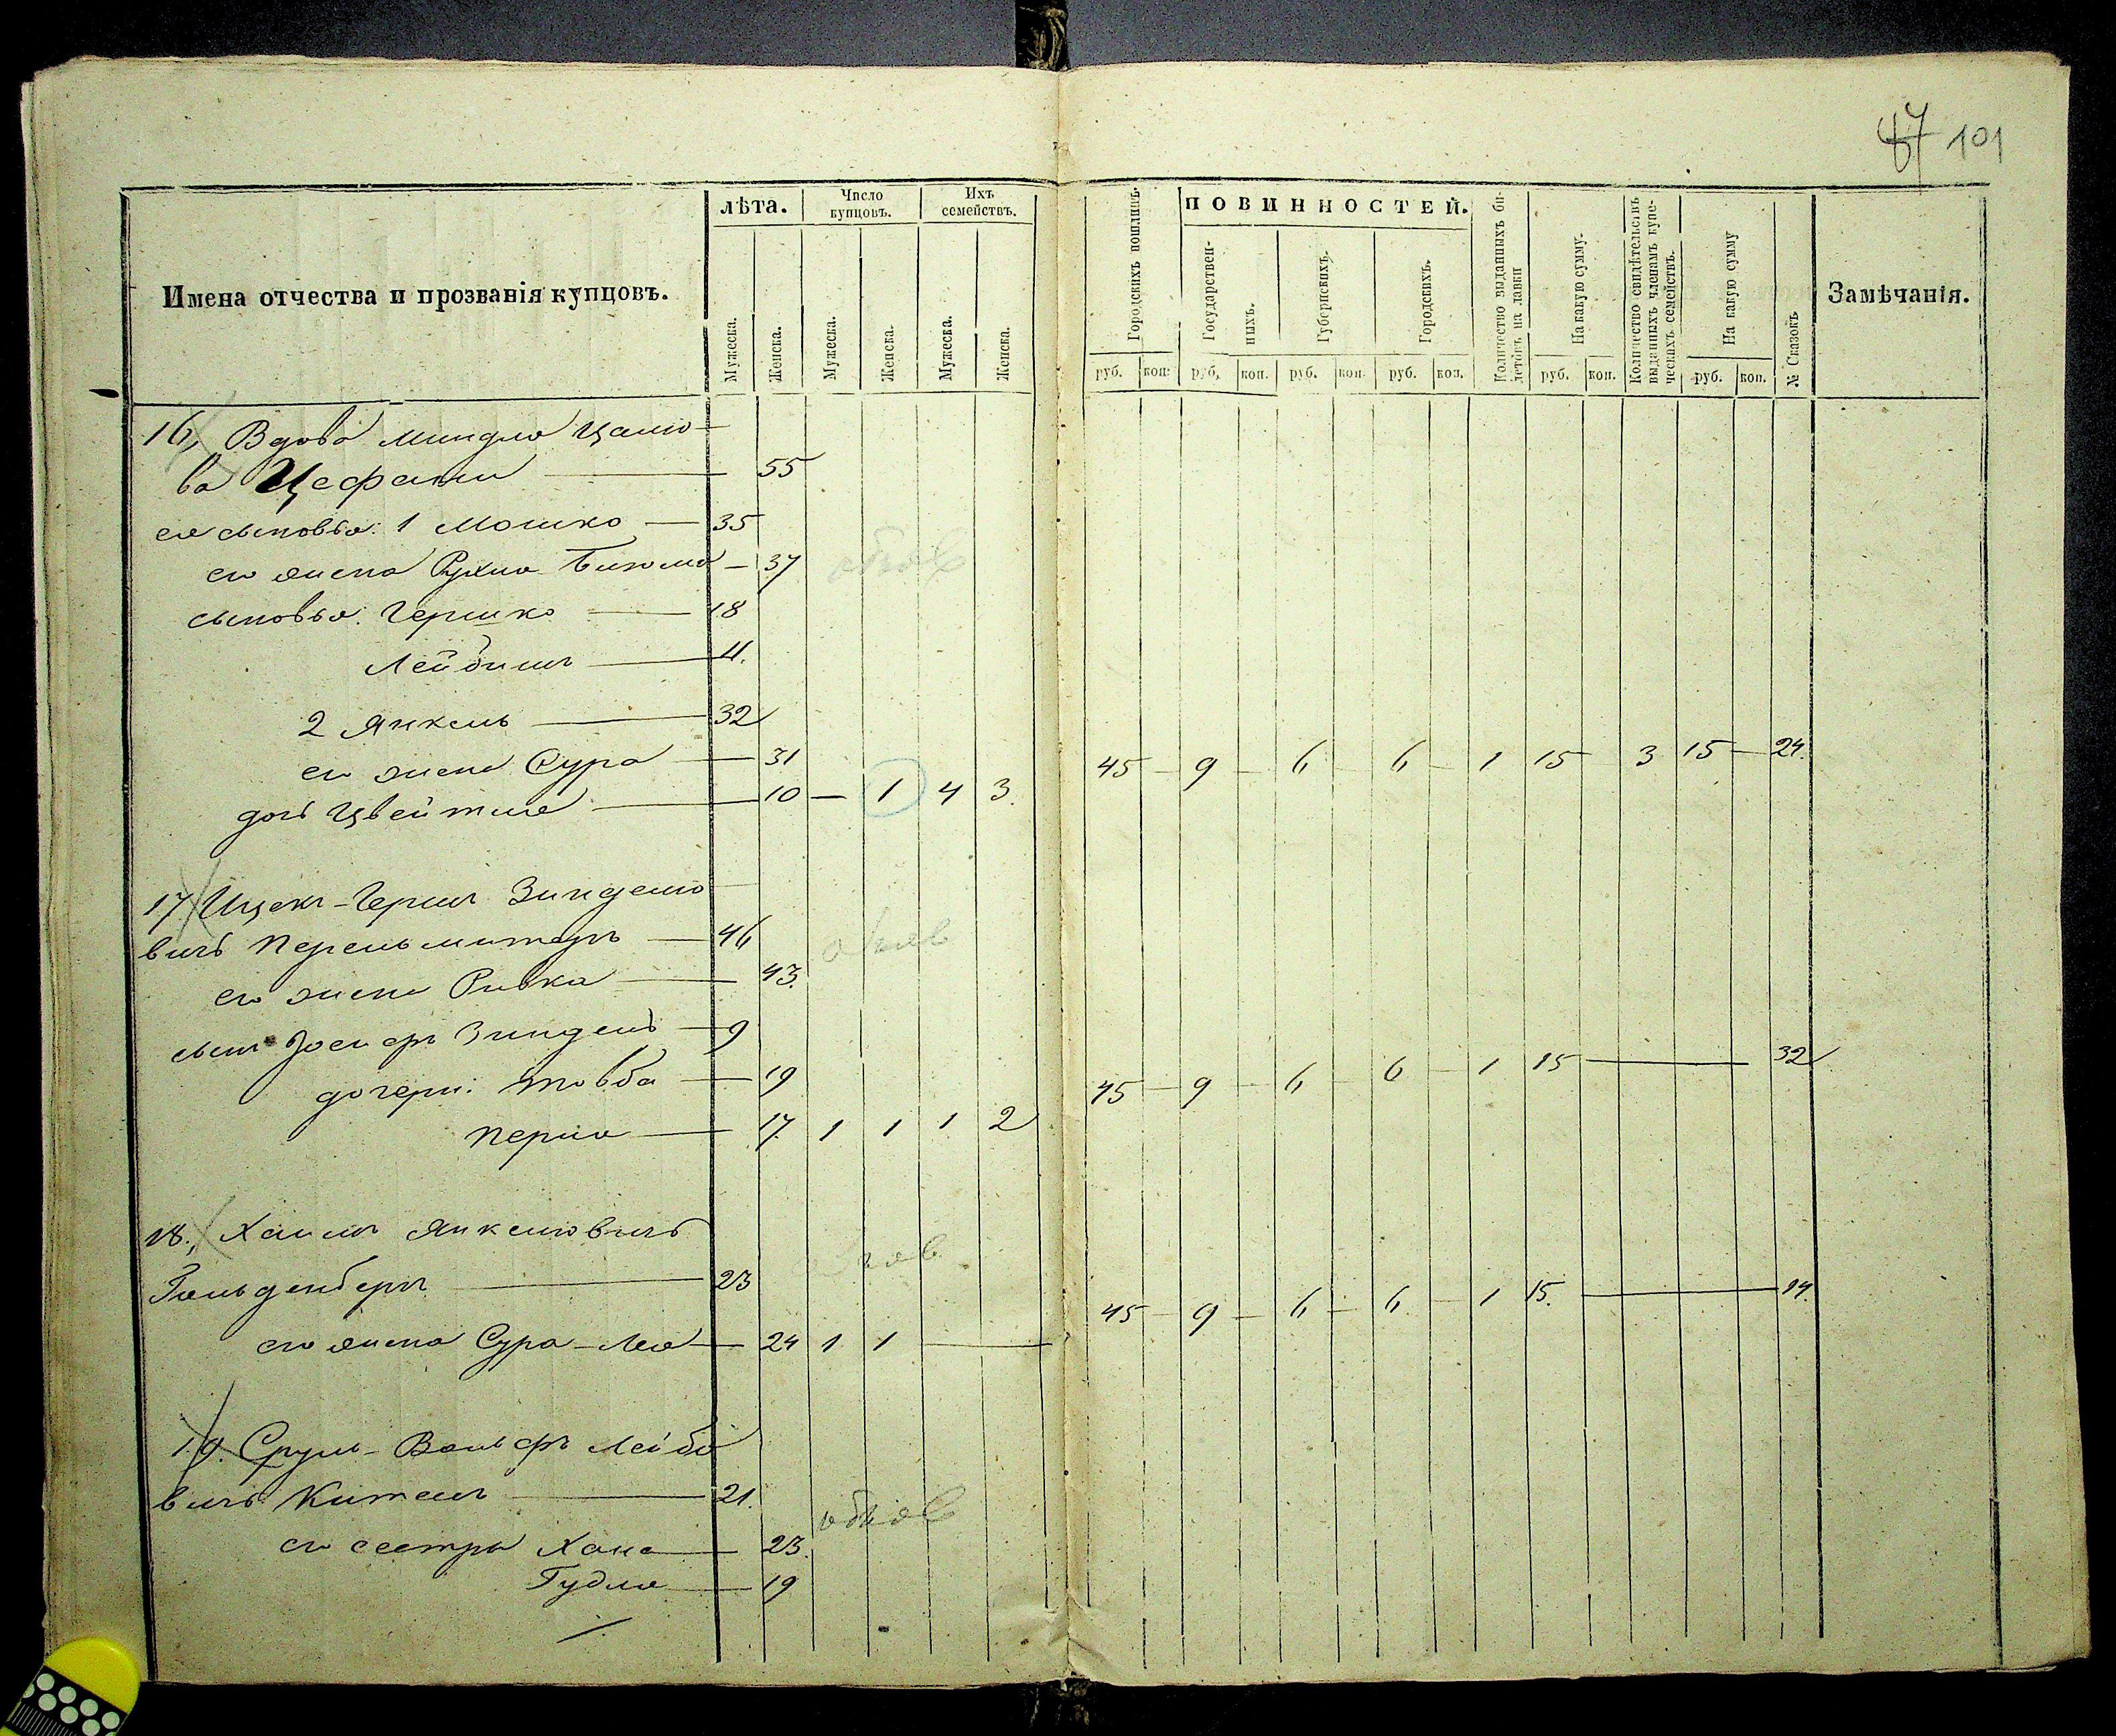 47 101
Имена отчества и прозванія купцовъ.
лѣта.
Число купцовъ.
Ихъ семействъ.
Мужеска. Женска. Мужеска. Женска. Мужеска. Женска.
Городскихъ пошлинъ.
ПОВИННОСТЕЙ.
Государственныхъ.
Губернскихъ.
Городскихъ.
Количество выданныхъ билетовъ на лавки
На какую сумму.
Количество свидѣтельствъ выданныхъ членамъ купеческихъ семействъ.
На какую сумму
№ Сказокъ
Замѣчанія.
руб. коп. руб. коп. руб. коп. руб. коп. руб. коп. руб. коп.
16, Вдова Миндля
ва 55
ея сыновья: 1 Мошко — 35
его жена Рухля — 37
сыновья: Гершко — 18
Лейбишъ — 11.
2 Янкель — 32
его жена Сура — 31
дочь Цвейтля — 10 — 1 4 3.
45 — 9 — 6 — 6 — 1 15 — 3 15 — 24.
17 Ицекъ-Гершъ Зинделю
вичъ Перельмитеръ — 46
его жена Ривка — 43.
сынъ Іосифъ Зиндель — 9
дочери: Товба — 19
Перля — 17. 1 1 1 2
45 — 9 — 6 — 6 — 1 15 — 32
18., Хаимъ Янкелювичъ
Гольденбергъ — 23
его жена Сура-Лея — 24 1 1 —
45 — 9 — 6 — 6 — 1 15. — 14.
19. Сруль-Вольфъ Лейбо
вичъ Китель — 21.
его сестры Хана — 23.
Гудля — 19
обїяв